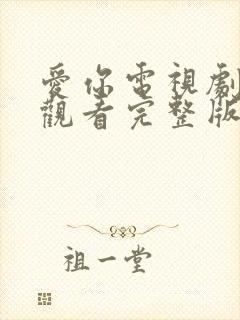 愛你電視劇
觀看完整版
祖一堂